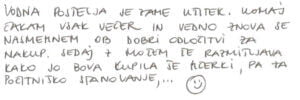 VODNA POSTELJA JE ZAME UŽITEK. KOMAJ
ČAKAM VSAK VEČER IN VEDNO ZNOVA SE
NASMEHNEM OB DOBRI ODLOČITVI ZA
NAKUP. SEDAJ Z MOŽEM ŽE RAZMIŠLJAVA
KAKO JO BOVA KUPILA ŠE HČERKI, PA ZA
POČITNIŠKO STANOVANJE,...